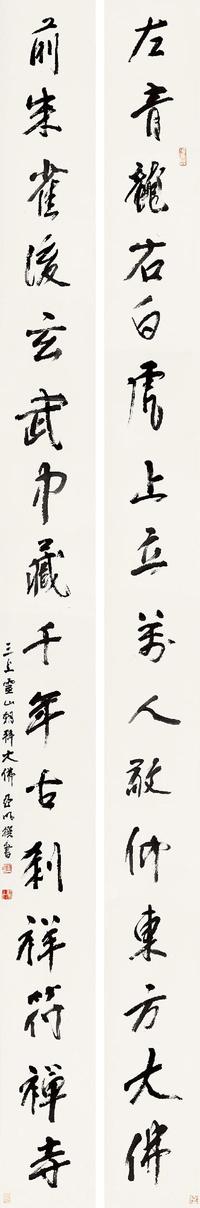 左青龍右白虎上立萬人敬仰東方大佛
前朱雀後玄武中藏千年古刹祥符禪寺
三上靈山朝拜大佛 亞明撰書